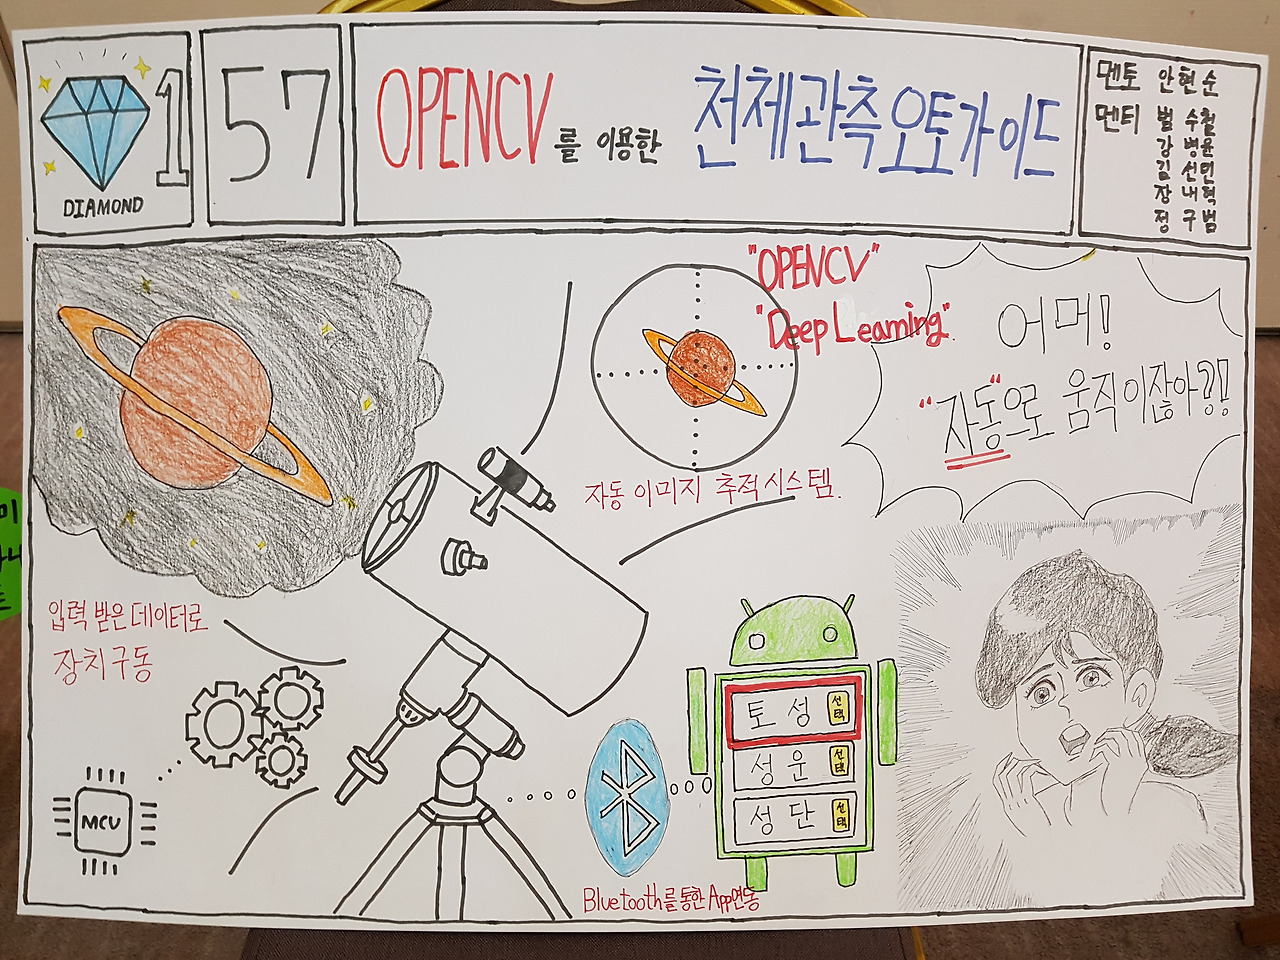 1
DIAMOND
57
OPENCV를 이용한 천체관측 오토가이드
멘토 안현순
멘티 범수철
강병윤
김선민
장내혁
정구범
"OPENCV"
"Deep Learning".
어머!
"자동"으로 움직이잖아?!!
자동 이미지 추적시스템.
입력 받은 데이터로
장치구동
MCU
토성 선택
성운 선택
성단 선택
Bluetooth를 통한 App연동